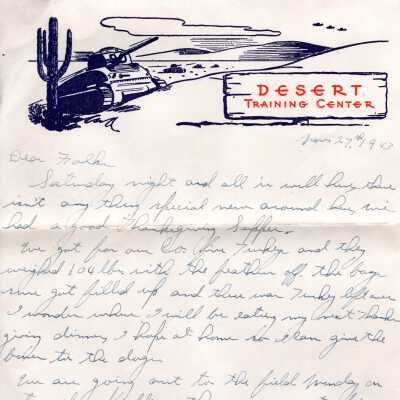 DESERT
TRAINING CENTER
Nov 27th 1943
Dear Folks
Saturday night and all is well here there
isn't any thing special new around here we
had a good Thanksgiving Supper.
We got for our Co. five Turkeys and they
weighed 104 lbs with the feathers off. the boys
sure got filled up and there was Turkey left over
I wonder where I will be eating my next Thanks
giving dinner, I hope at home so I can give the
bones to the dogs.
We are going out to the field Monday on